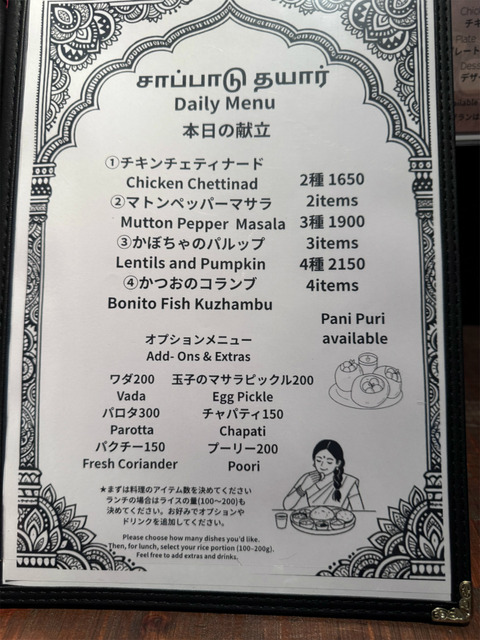 சாப்பாடு தயார்
Daily Menu
本日の献立
①チキンチェティナード
Chicken Chettinad
2種 1650
②マトンペッパーマサラ
2items
Mutton Pepper Masala
3種 1900
③かぼちゃのパルップ
3items
Lentils and Pumpkin
4種 2150
④かつおのコランブ
4items
Bonito Fish Kuzhambu
Pani Puri
available
オプションメニュー
Add- Ons & Extras
ワダ200 玉子のマサラピックル200
Vada Egg Pickle
パロタ300 チャパティ150
Parotta Chapati
パクチー150 プーリー200
Fresh Coriander Poori
★まずは料理のアイテム数を決めてください
ランチの場合はライスの量(100〜200g)も
決めてください。お好みでオプションや
ドリンクを追加してください。
Please choose how many dishes you'd like.
Then, for lunch, select your rice portion (100–200g).
Feel free to add extras and drinks.